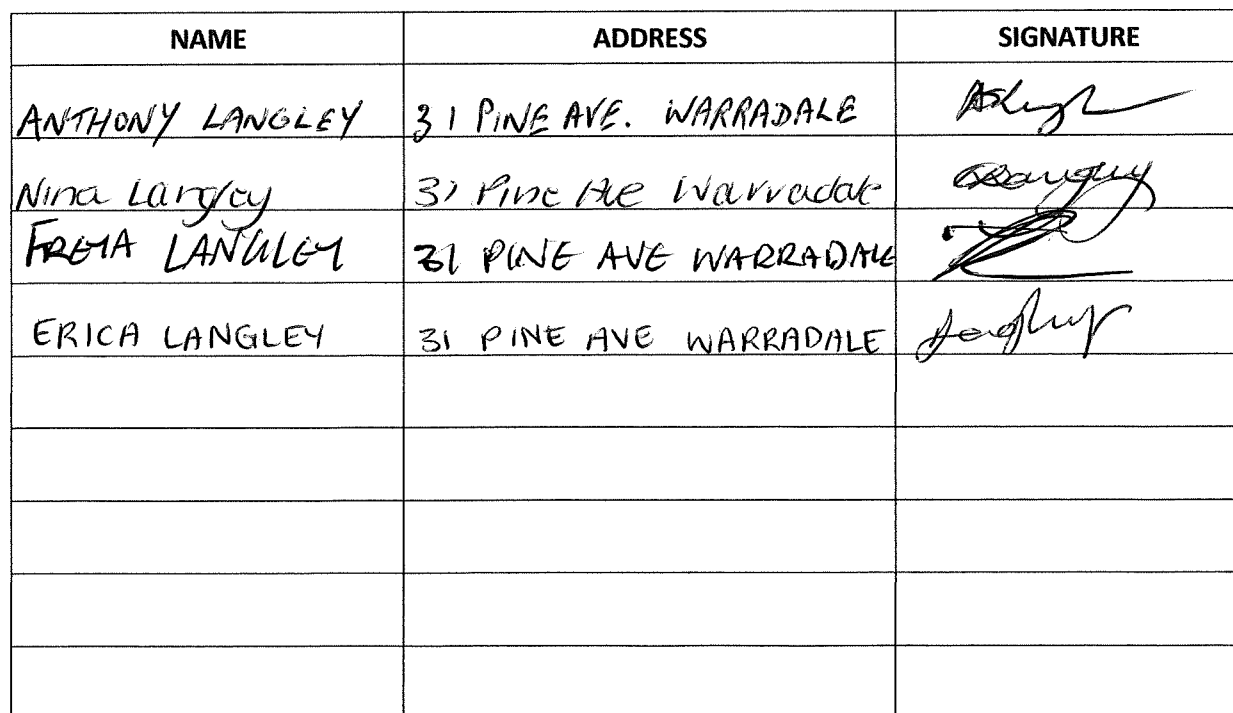 NAME ADDRESS SIGNATURE
ANTHONY LANGLEY 31 PINE AVE. WARRADALE
Nina Langley 31 Pine Ave Warradale
FREYA LANGLEY 31 PINE AVE WARRADALE
ERICA LANGLEY 31 PINE AVE WARRADALE